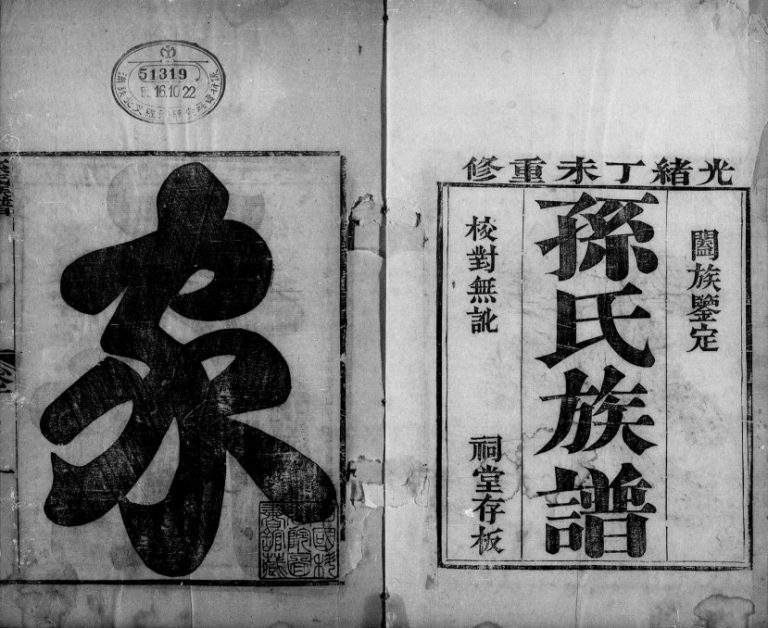 光緒丁未重修
闔族鑒定
孫氏族譜
校對無訛
祠堂存板
家
51319
16.10.22